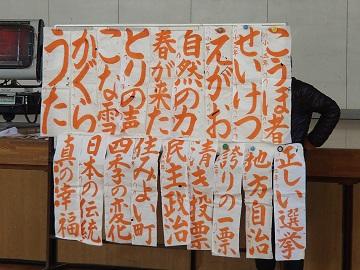 こうはく者
せいけつ
えがお
自然の力
春が来た
とりの声
こな雪
かぐら
うた
正しい選挙
地方自治
誇りの一票
清き投票
民主政治
住みよい町
四季の変化
日本の伝統
真の幸福